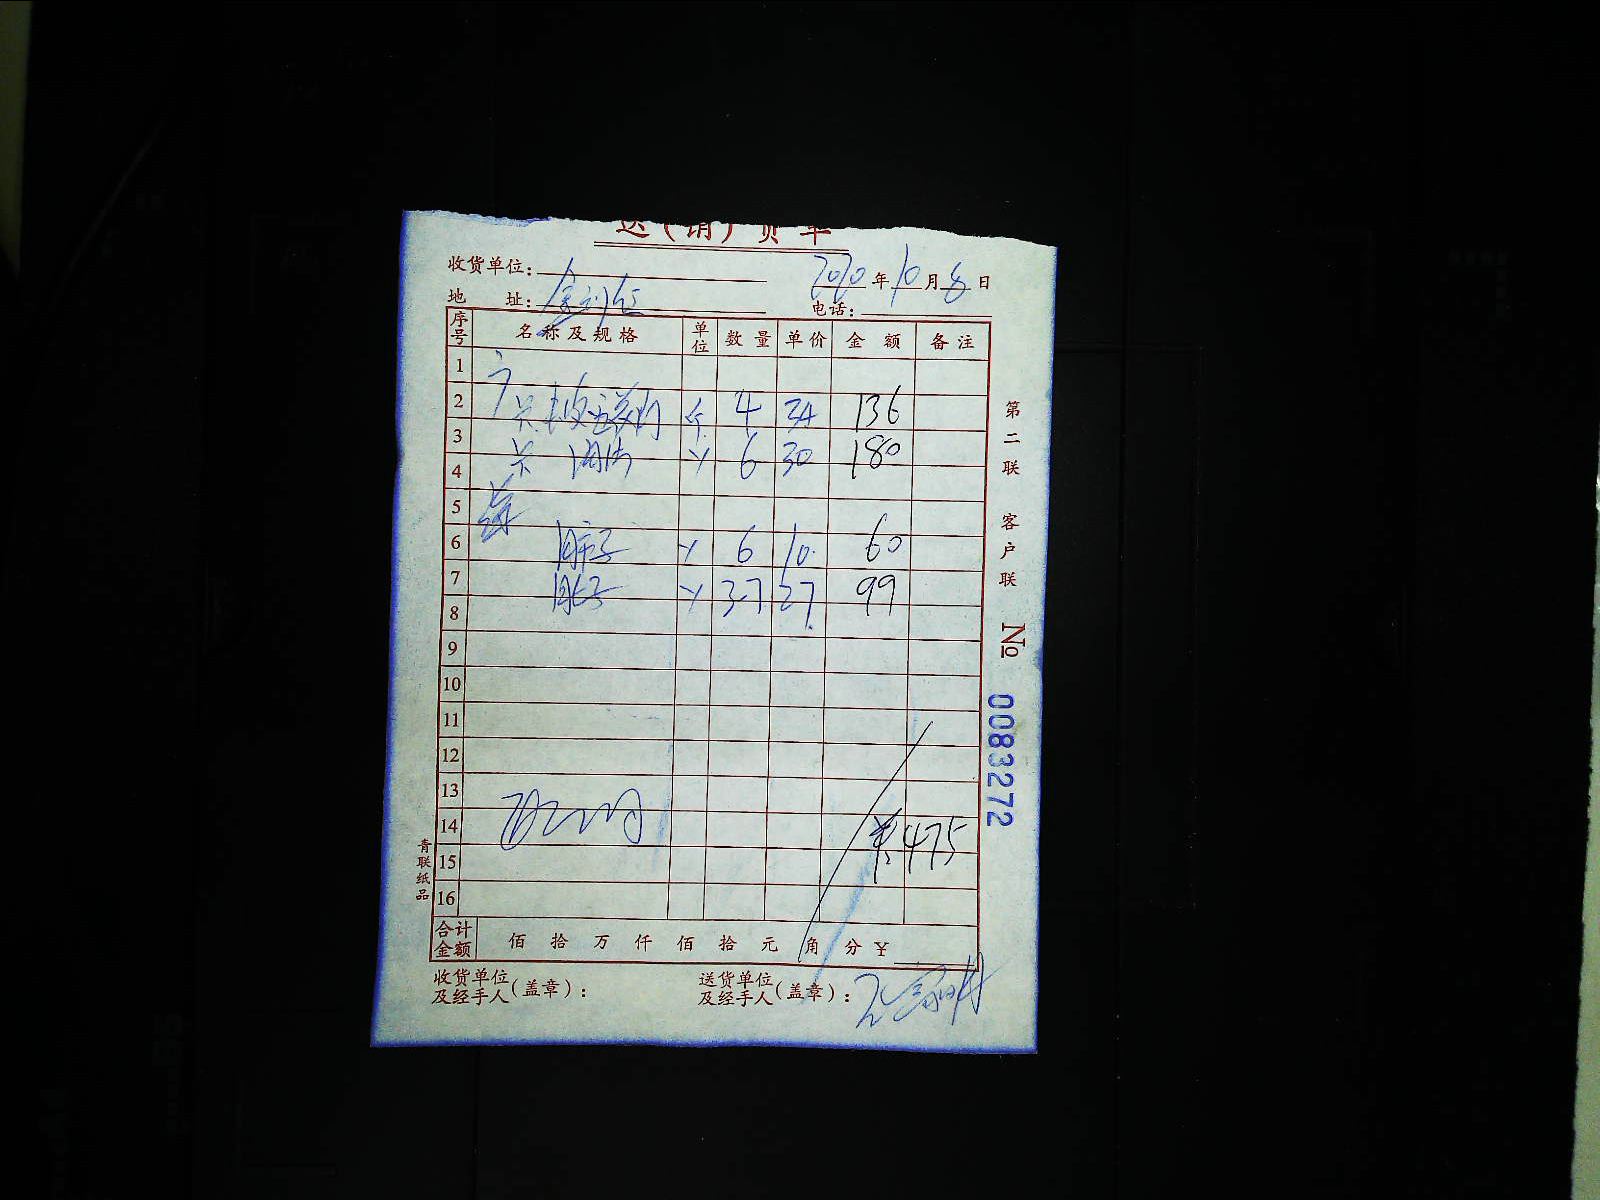 送(销)货单
收货单位:
2020年10月8日
地 址:
电话:
序号 名称及规格 单位 数量 单价 金额 备注
1
2 4 34 136
3 6 30 180
4
5
6 肺子 6 10 60
7 肚子 3.7 27 99
8
9
10
11
12
13
14 475
15
16
合计金额 佰 拾 万 仟 佰 拾 元 角 分 ¥
收货单位及经手人(盖章):
送货单位及经手人(盖章):
第二联 客户联
№ 0083272
青联纸品